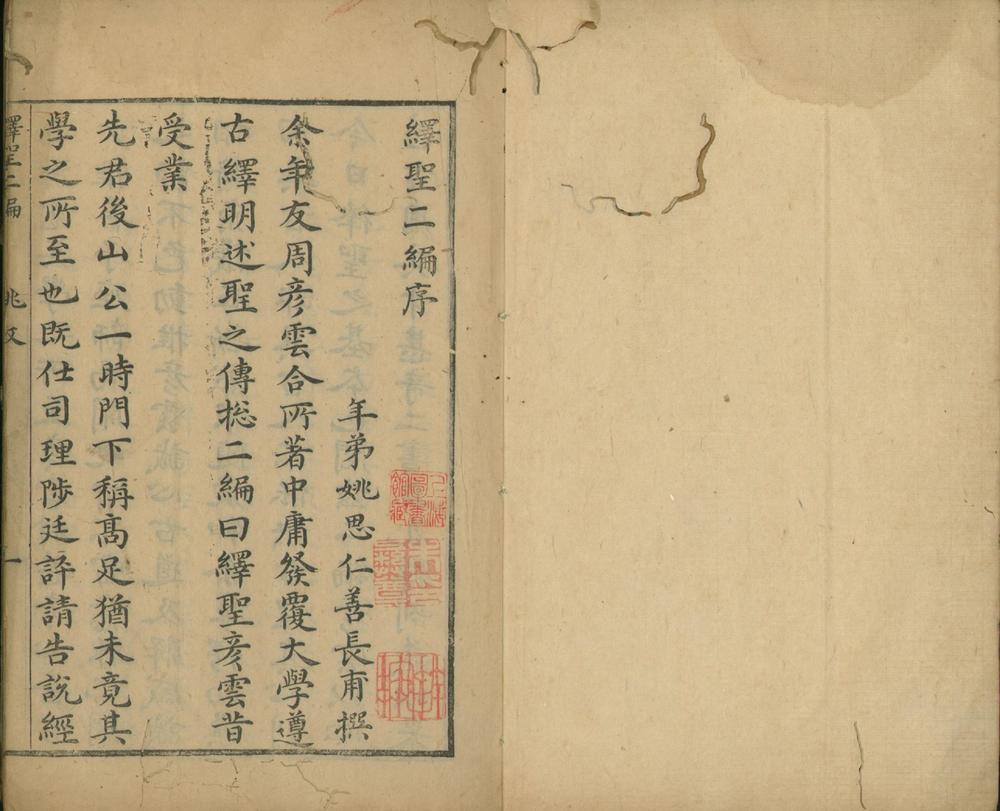 繹聖二編序
年弟姚思仁善長甫撰
余年友周彦雲合所著中庸發覆大學遵
古繹明述聖之傳摠二編曰繹聖彦雲昔
受業
先君後山公一時門下稱髙足猶未竟其
學之所至也既仕司理陟廷評請告說經
繹聖二編
一
上海圖書館藏